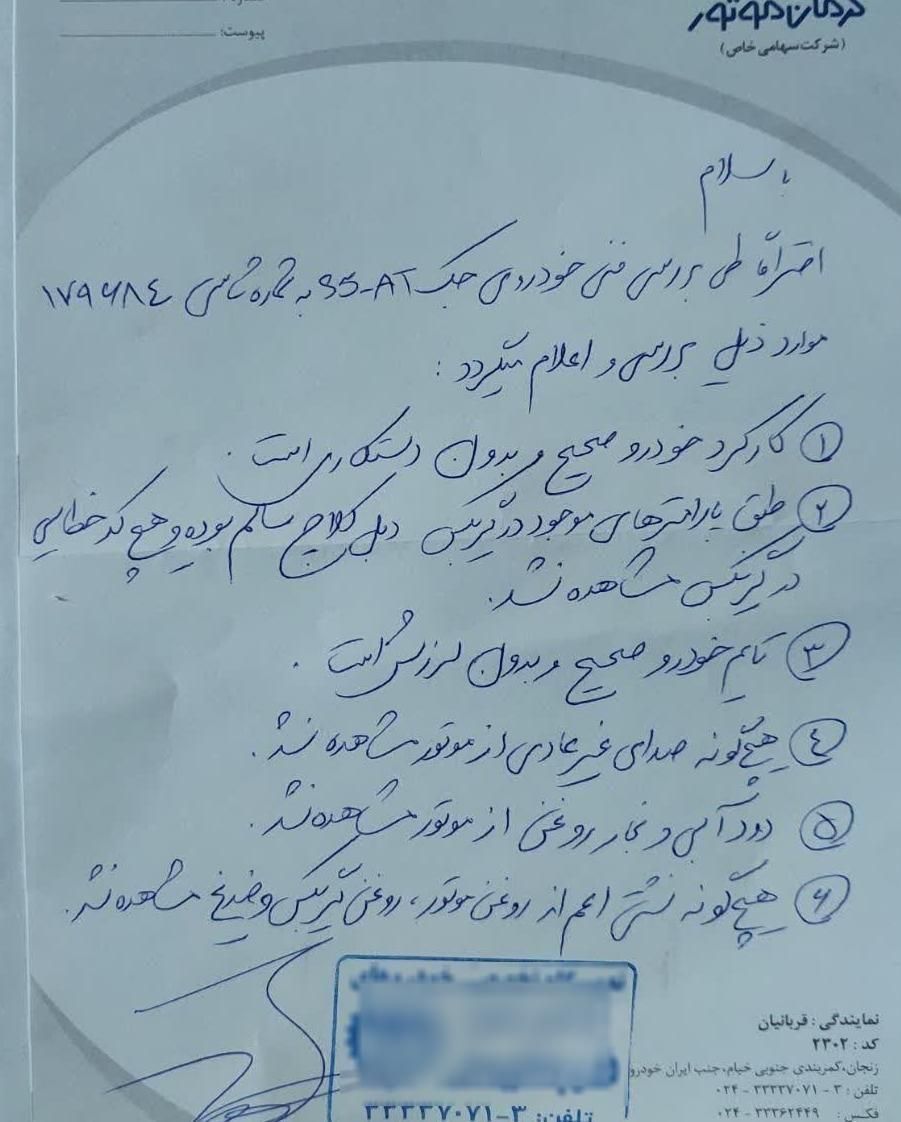 پیوست:
کرمان موتور
(شرکت سهامی خاص)
با سلام
احتراماً طی بررسی فنی خودروی جک S5-AT به شماره شاسی ۱۷۹۶۸٤
موارد ذیل بررسی و اعلام میگردد :
۱ کارکرد خودرو صحیح و بدون دستکاری است .
۲ طبق پارامترهای موجود در گیربکس دبل کلاچ سالم بوده و هیچ کد خطایی
در گیربکس مشاهده نشد.
۳ تایم خودرو صحیح و بدون لرزش است .
٤ هیچگونه صدای غیر عادی از موتور مشاهده نشد.
۵ دود آبی و بخار روغن از موتور مشاهده نشد.
۶ هیچگونه نشتی اعم از روغن موتور، روغن گیربکس و ضدیخ مشاهده نشد.
نمایندگی : قربانیان
کد : ۲۳۰۲
زنجان،کمربندی جنوبی خیام، جنب ایران خودرو
تلفن : ۳ - ۳۳۳۳۷۰۷۱ - ۰۲۴
فکس : ۳۳۳۶۲۴۴۹ - ۰۲۴
تلفن: ۳-۳۳۳۳۷۰۷۱